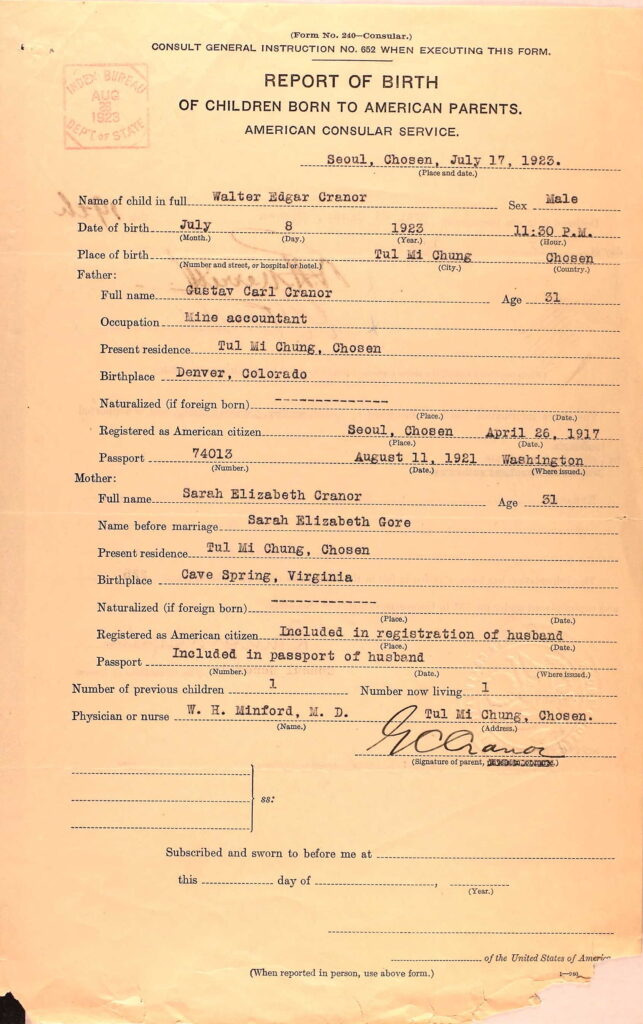 (Form No. 240—Consular.)
CONSULT GENERAL INSTRUCTION NO. 652 WHEN EXECUTING THIS FORM.
INDEX BUREAU
AUG
28
1923
DEP'T of STATE
REPORT OF BIRTH
OF CHILDREN BORN TO AMERICAN PARENTS.
AMERICAN CONSULAR SERVICE.
Seoul, Chosen, July 17, 1923.
(Place and date.)
Name of child in full Walter Edgar Cranor Sex Male
Date of birth July 8 1923 11:30 P.M.
(Month.) (Day.) (Year.) (Hour.)
Place of birth Tul Mi Chung Chosen
(Number and street, or hospital or hotel.) (City.) (Country.)
Father:
Full name Gustav Carl Cranor Age 31
Occupation Mine accountant
Present residence Tul Mi Chung, Chosen
Birthplace Denver, Colorado
Naturalized (if foreign born) --------------
(Place.) (Date.)
Registered as American citizen Seoul, Chosen April 26, 1917
(Place.) (Date.)
Passport 74013 August 11, 1921 Washington
(Number.) (Date.) (Where issued.)
Mother:
Full name Sarah Elizabeth Cranor Age 31
Name before marriage Sarah Elizabeth Gore
Present residence Tul Mi Chung, Chosen
Birthplace Cave Spring, Virginia
Naturalized (if foreign born) -------------
(Place.) (Date.)
Registered as American citizen Included in registration of husband
(Place.) (Date.)
Passport Included in passport of husband
(Number.) (Date.) (Where issued.)
Number of previous children 1 Number now living 1
Physician or nurse W. H. Minford, M. D. Tul Mi Chung, Chosen.
(Name.) (Address.)
G C Cranor
(Signature of parent,
ss:
Subscribed and sworn to before me at
this day of ,
(Year.)
of the United States of America
(When reported in person, use above form.)